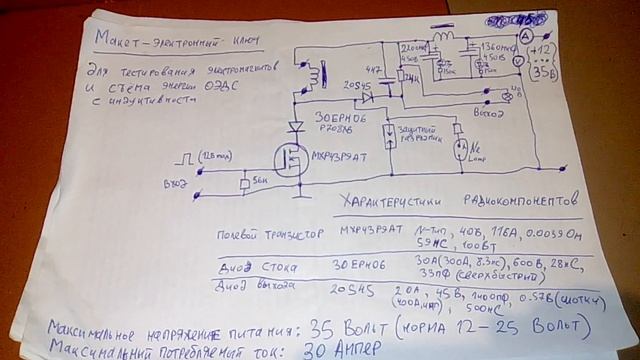 Макет-электронный ключ
для тестирования электромагнитов
и съема энергии ОЭДС
с индуктивности
A
V
(+12
...
35В)
2200мкф
450В
1360мкф
450В
4н7
20S45
Выход
30EPH06
P208AB
Защитный
разрядник
Ne
Lamp
MXP43P9AT
(12В max)
Вход
56к
Характеристики радиокомпонентов
Полевой транзистор MXP43P9AT N-тип, 40В, 116А, 0.0039 Ом
59нС, 100Вт
Диод стока 30EPH06 30А(300А, 8.3мс), 600В, 28нС,
33пф (сверхбыстрый)
Диод выхода 20S45 20А, 45В, 1400пф, 0.57В (шоттки)
(400А,имп), 500нС
Максимальное напряжение питания: 35 Вольт (норма 12-25 Вольт)
Максимальный потребляемый ток: 30 Ампер